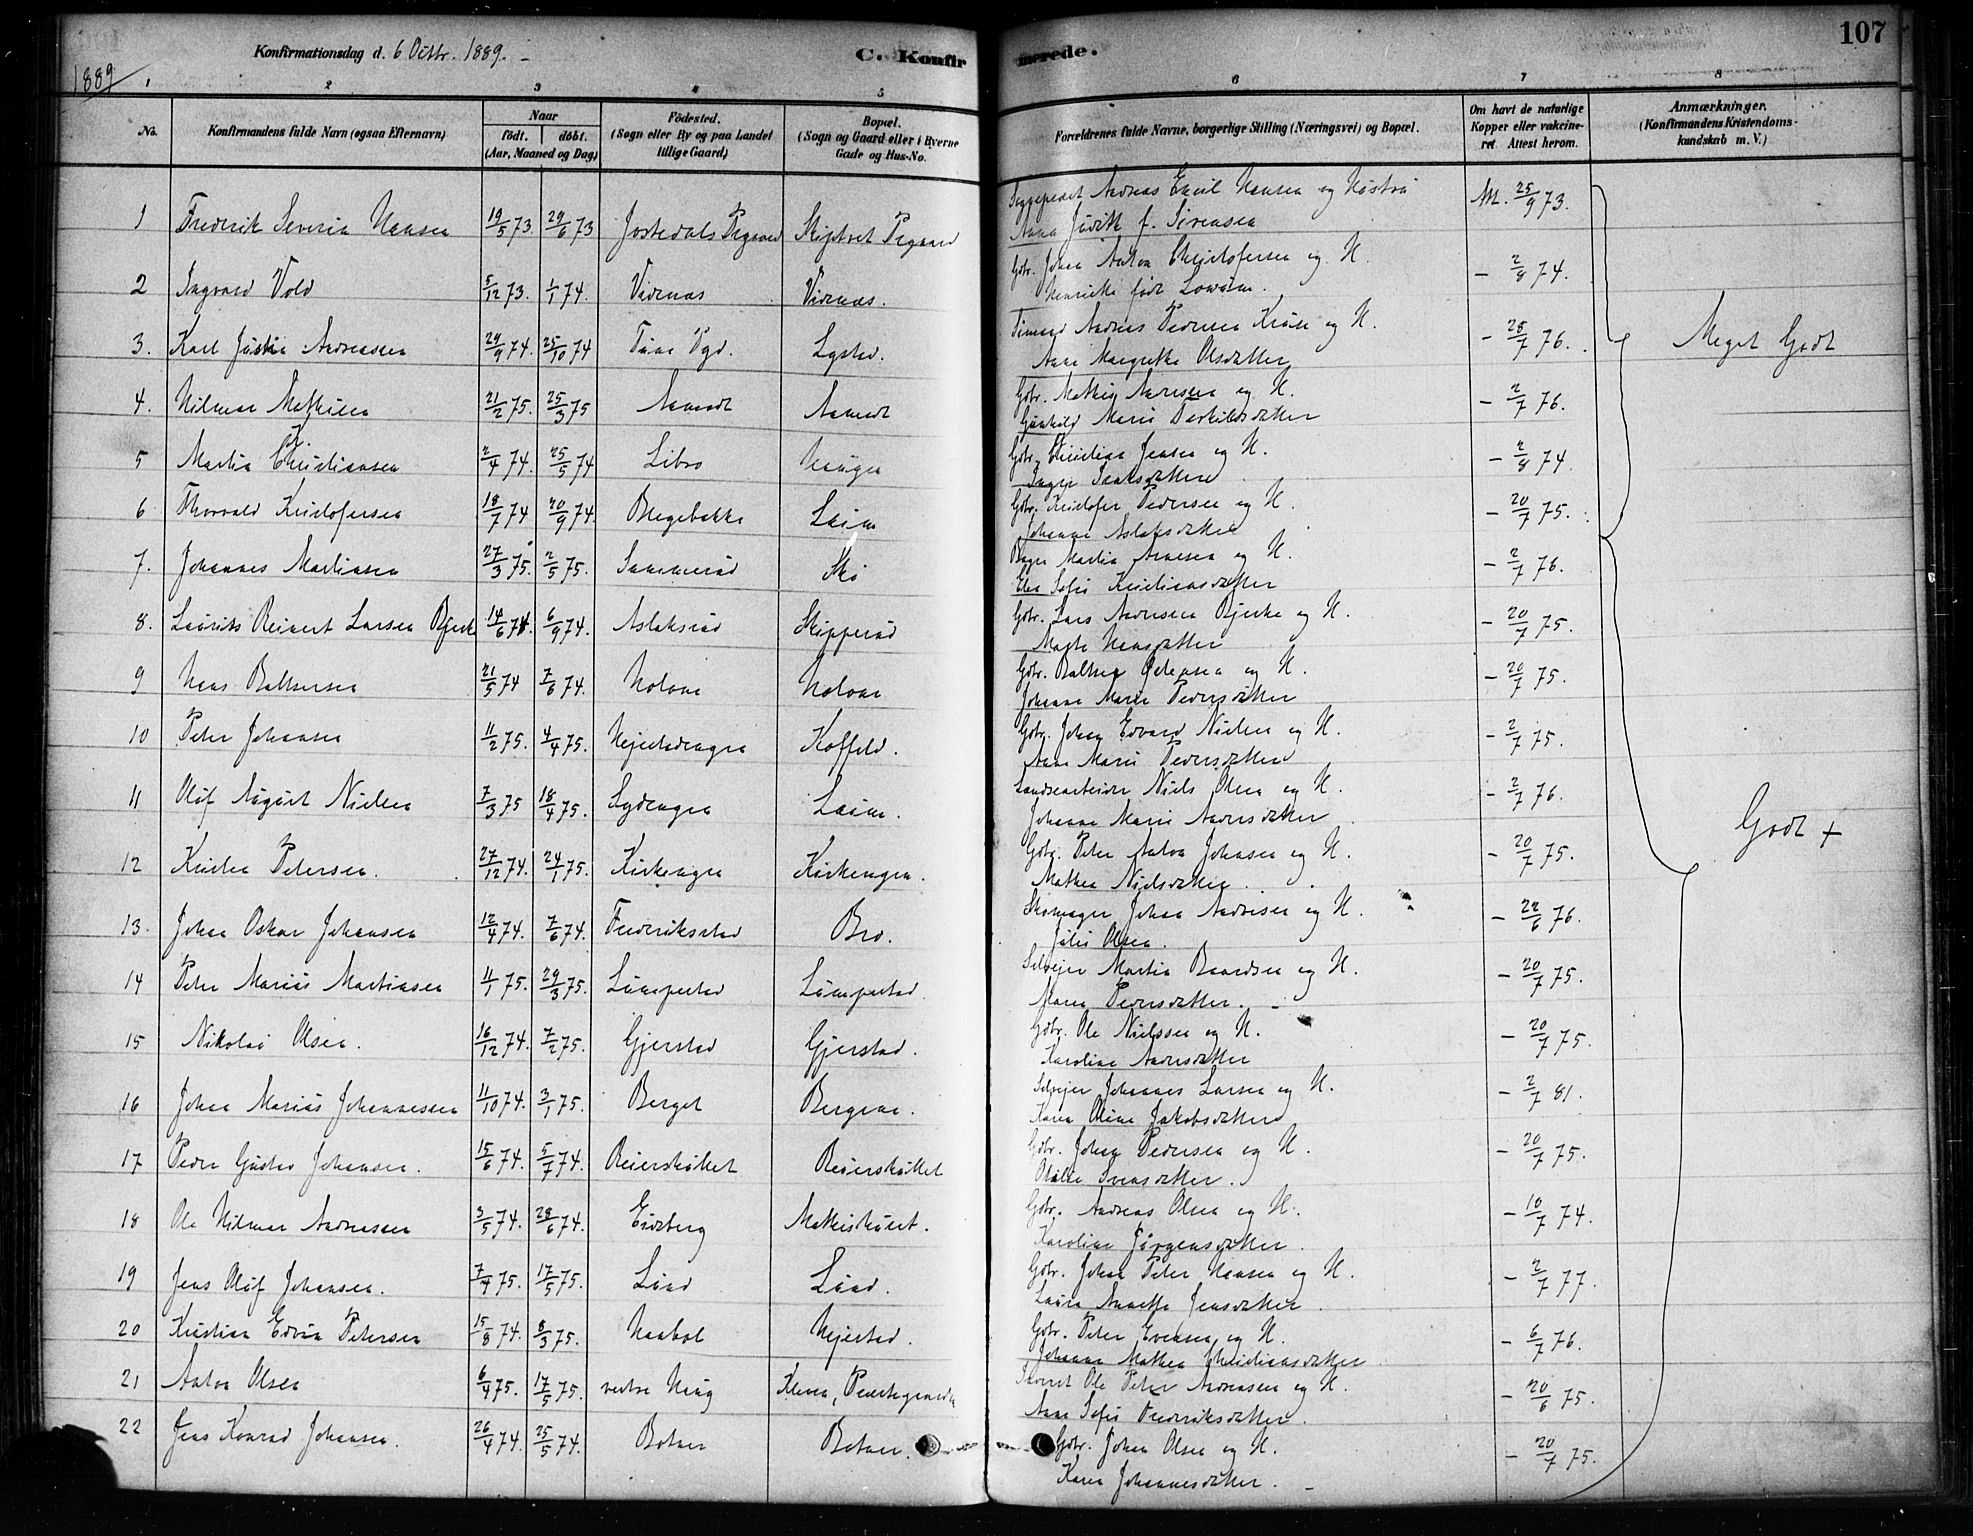 107
Konfirmationsdag d. 6 Octbr. 1889.
C. Konfirmerede.
1889
1 2 3 4 5 6 7 8
No.
Konfirmandens fulde Navn (ogsaa Efternavn)
Naar
födt. döbt.
(Aar, Maaned og Dag)
Födested.
(Sogn eller By og paa Landet
tillige Gaard)
Bopæl.
(Sogn og Gaard eller i Byerne
Gade og Hus-No.
Forældrenes fulde Navne, borgerlige Stilling (Næringsvei) og Bopæl.
Om havt de naturlige
Kopper eller vakcine-
ret. Attest herom.
Anmærkninger.
(Konfirmandens Kristendoms-
kundskab m. V.)
1 Frederik Severin Hansen 19/5 73. 29/6 73 Jostedals Pgaard Skiptvet Pgaard Sognepræst Andreas Emil Hansen og Hustru M. 25/9 73.
Anna Judith f. Sörensen
2 Ingvard Vold 5/12 73. 1/1 74. Vidnæs Vidnæs. Gdbr. Johan Anton Christofersen og H. - 2/8 74.
Henriette födt
3. Karl Justin Andreassen 29/9 74. 25/10 74 Tune Pgd. Lysted. Andreas Pedersen Kruse og H. - 25/7 76.
Anne Margrethe Olsdatter
Meget Godt
4. Hilmar Mathisen 21/2 75. 25/3 75 Aamodt Aamodt Gdbr. Mathis Andersen og H. - 2/7 76.
Gunhild Marie Torkildsdatter
5 Martin K. Christiansen 2/4 74. 25/5 74 Libro Haugen Gdbr. Christian Jensen og H. - 2/8 74.
Inger Isaksdatter
6 Thorvald Kristofersen 18/7 74 20/9 74. Bregebakke Lund Gdbr. Kristofer Pedersen og H. - 20/7 75.
Johanne Aslaksdatter
7. Johannes Martinsen 27/3 75. 2/5 75. Sammerud Skö Martin Arnesen og H. - 2/7 76.
Else Sofie Kristiansdatter
8. Laurits Reinert Larsen Bjerk 14/6 74. 6/9 74. Aslaksrud Skipperud Gdbr. Lars Andersen Bjerke og H. - 20/7 75.
Marte Hansdatter
9 Hans Baltsersen 21/5 74 7/6 74. Holone Holone Gdbr. Baltser og H. - 20/7 75.
Johanne Marie Pedersdatter
10 Peter Johansen 11/2 75. 4/4 75. Hjertedengen Koffeld. Gdbr. Johan Edvard Nielsen og H. - 2/7 75.
Anne Marie Pedersdatter
11 Oluf August Nielsen 7/3 75 18/4 75. Sydengen Lund. Landsearbeider Niels Olsen og H. - 2/7 76.
Johanne Marie Andersdatter
Godt +
12 Kristen Petersen. 27/12 74. 24/1 75. Kirkengen Kirkengen. Gdbr. Peter Anton Johnsen og H. - 20/7 75.
Mathea Nielsdatter.
13. Johan Oskar Johansen 12/4 74. 7/6 74. Frederikstad Bro. Skomager Johan Andresen og H. - 22/6 76.
Julie Olsen.
14 Peter Marius Martinsen 11/1 75. 29/3 75. Lunnestad Lunnestad. Selveier Martin Baardsen og H. - 20/7 75.
Maren Pedersdatter.
15 Nikolai Olsen. 16/12 74. 7/2 75. Gjerstad Gjerstad. Gdbr. Ole Nielssen og H. - 20/7 75.
Karoline Andersdatter
16 Johan Marius Johannessen 11/10 74. 3/1 75. Berget Bergene. Selveier Johannes Larsen og H. - 2/7 81.
Karen Oline Jakobsdatter
17 Peder Gustav Johansen. 15/6 74. 5/7 74. Reierskullet Reierskullet Gdbr. Johan Pedersen og H. - 20/7 75.
Olalie Svensdatter.
18 Ole Hilmar Andreassen 3/5 74. 28/6 74. Eidsberg Mathishuset. Gdbr. Andreas Olsen og H. - 10/7 74.
Karoline Jörgensdatter.
19 Jens Oluf Johansen. 7/4 75. 17/5 75. Lund Lund. Gdbr. Johan Peter Hansen og H. - 2/7 77.
Laura Annette Jensdatter.
20 Kristian Edvin Petersen 15/8 74. 8/3 75. Haabol Hjelstad. Gdbr. Peter Evensen og H. - 6/7 76.
Johanne Mathea Christiansdatter
21 Anton Olsen 6/4 75. 17/5 75. vestre Haug Kleven, Præstegaarden Ole Peter Andreassen og H. - 20/6 75.
Anne Sofie Frederiksdatter.
22 Jens Konrad Johansen. 26/4 74. 25/5 74. Botner Botner. Gdbr. Johan Olsen og H. - 20/7 75.
Karen Johannesdatter.